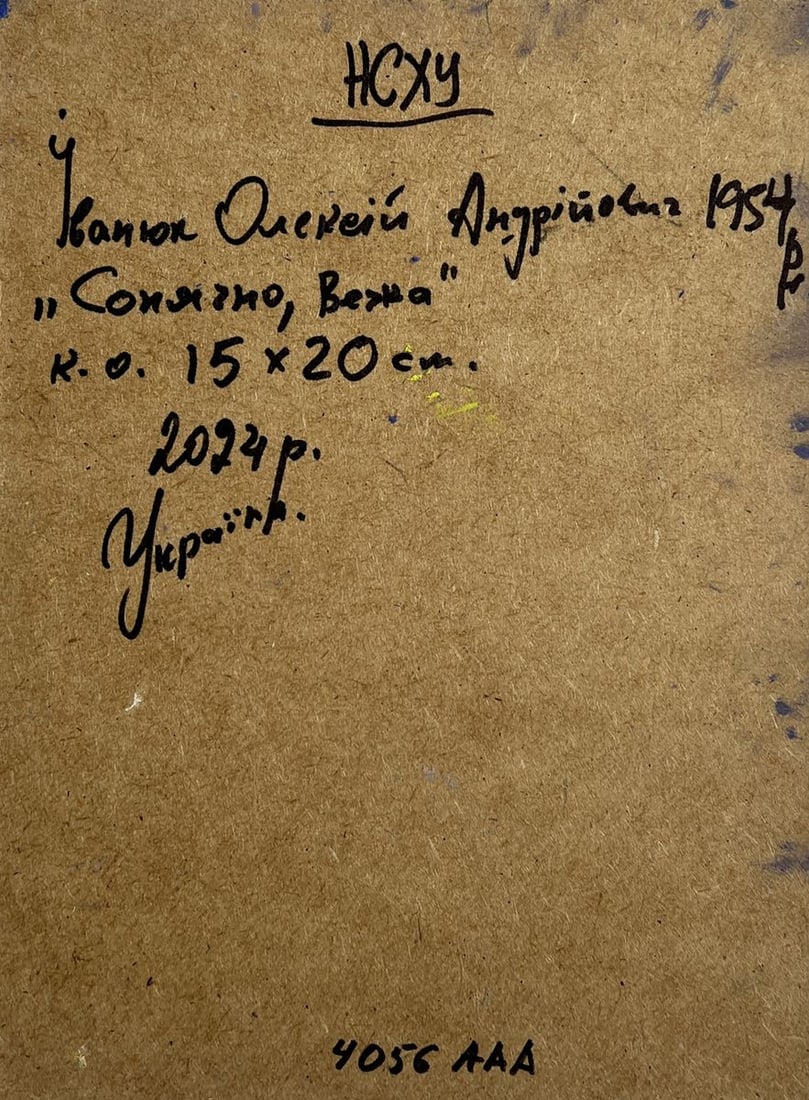 НСХУ
Іванюк Олексій Андрійович 1954 р н
„Сонячно, Весна"
к. о. 15 х 20 см.
2024 р.
Україна.
4056 ААА